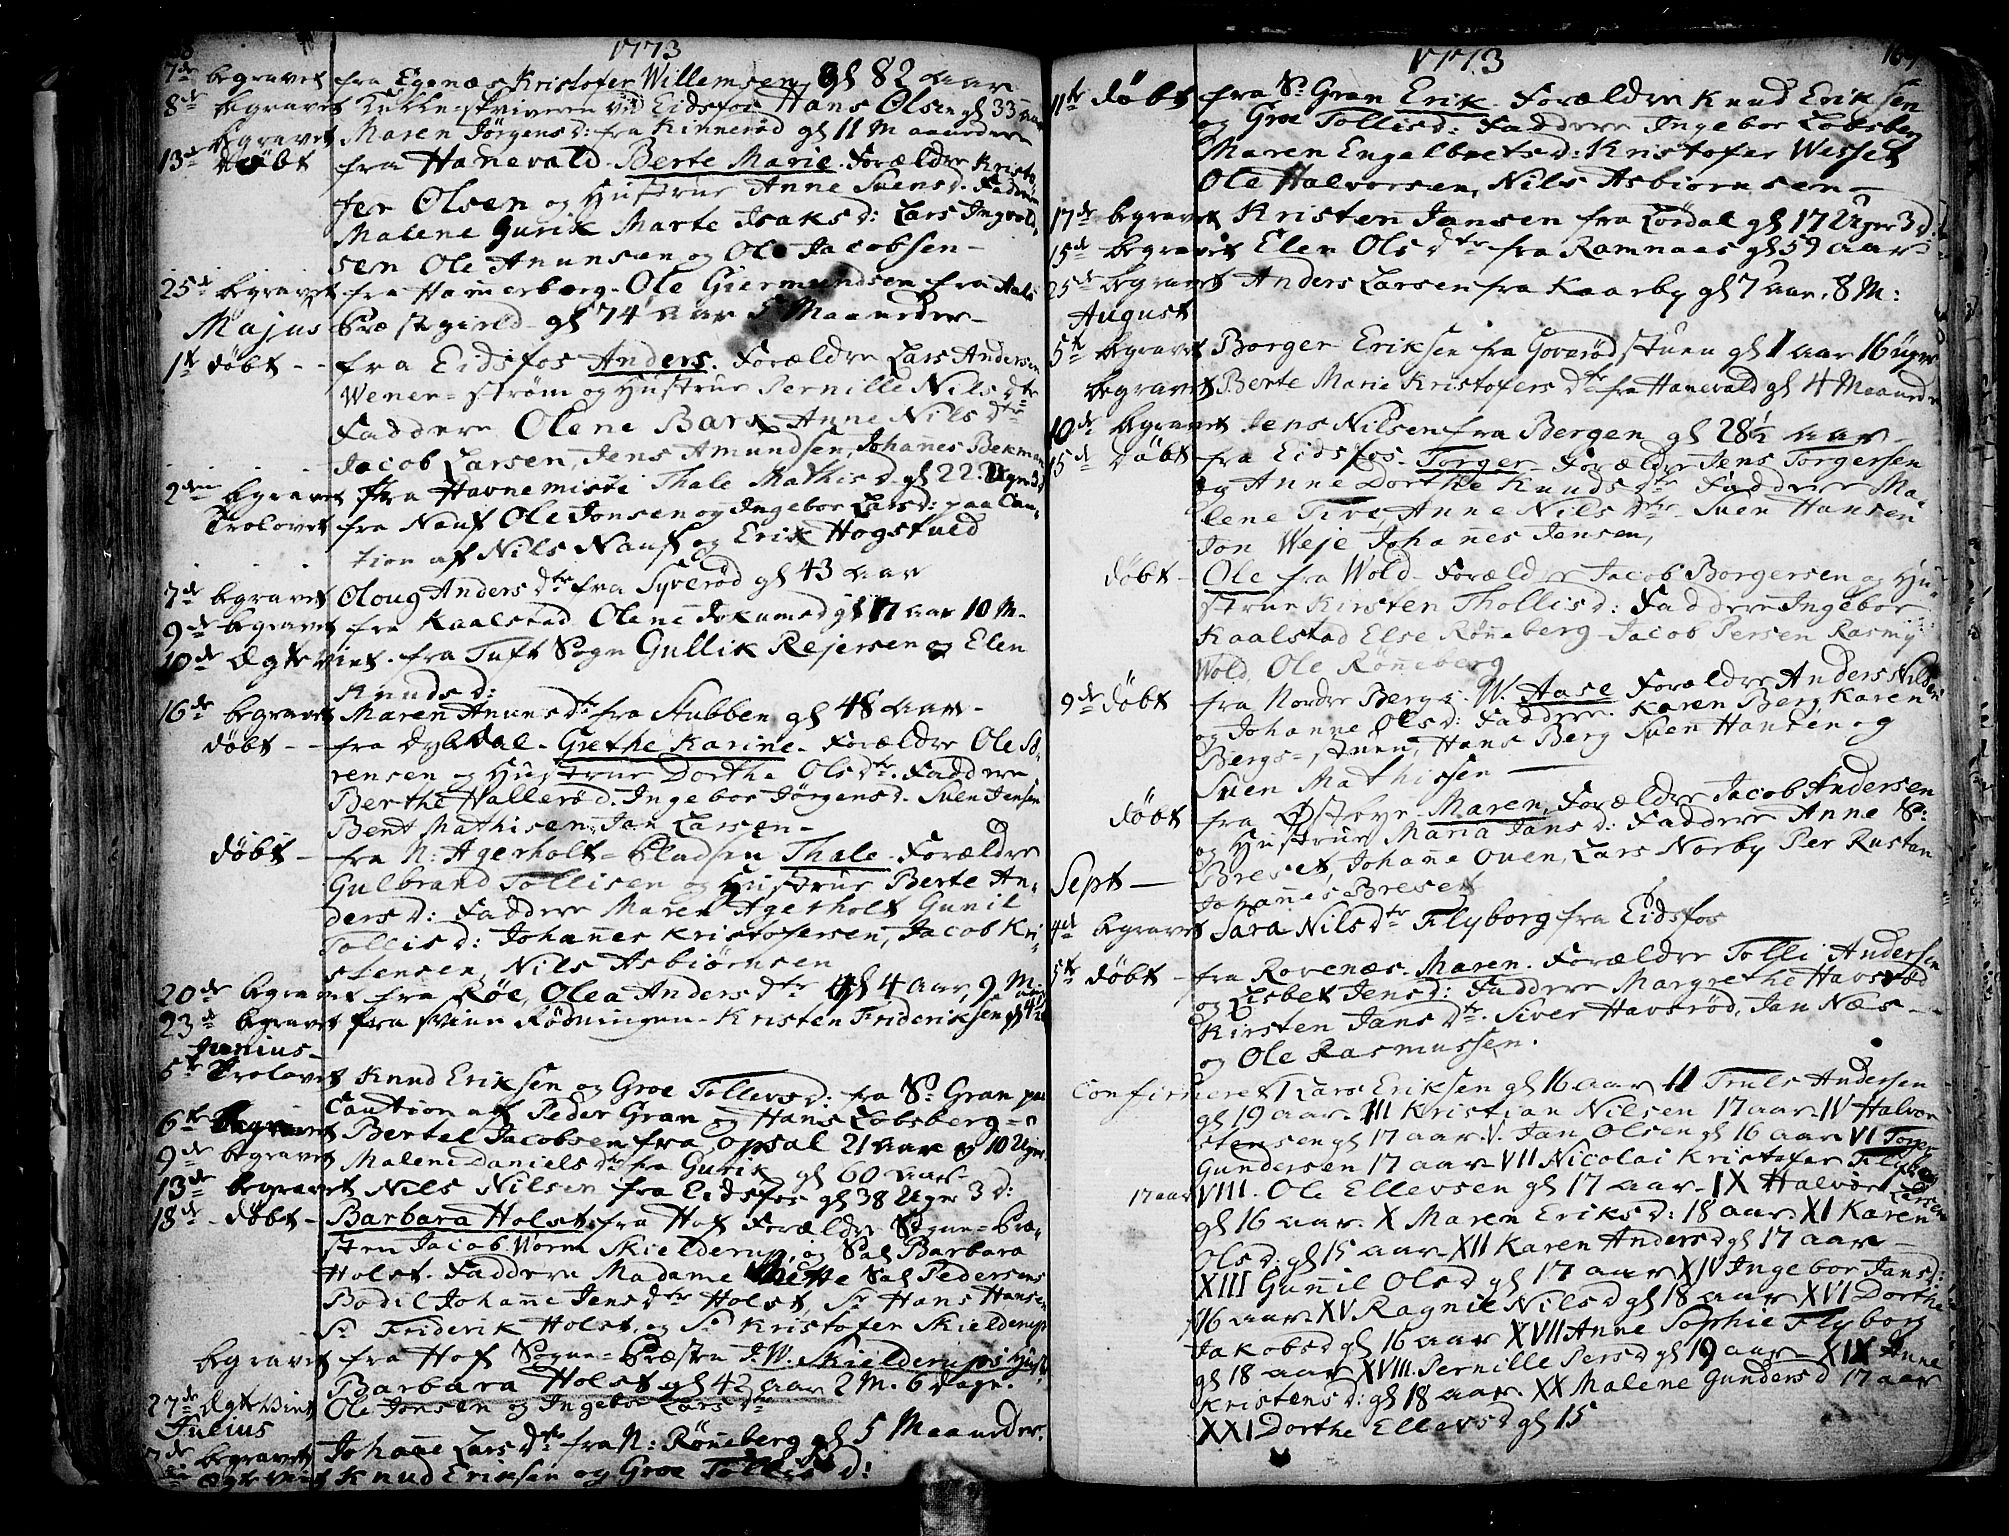 1773
7de begravet fra Egenæs Kristofer Willemsen gl 82 aar
8de begravet Kulleskriveren ved Eidsfos Hans Olsen gl 33 aar
begravet Maren Jørgensd: fra Kinnerød gl 11 Maaneder
13de døbt fra Hanevald Berte Marie. Forældre Kristo
fer Olsen og Hustrue Anne Suensd. Faddere
Malene Gurik Marte Isaksd: Lars Ingvold-
sen Ole Anunsen og Ole Jacobsen-
25de begravet fra Hamerberg Ole Giermundsen fra Aals
Majus Præstegield gl 74 aar 5 Maaneder-
1te døbt - - fra Eidsfos Anders. Forældre Lars Andersen
Wener=strøm og Hustrue Pernille Nils dtr
Faddere Olene Bark Anne Nils dtr
Jacob Larsen, Jens Amundsen, Johannes Bekman
2den begravet fra Havnemiste Thale Mathisd gl 22 Uger 3d
Trolovet fra Nauf Ole Jonsen og Ingebor Larsd: paa Cau-
tion af Nils Nauf og Erik Hogstveld
7de begravet Oloug Anders dtr fra Syverød gl 43 aar
9de begravet fra Kaalstad Olene gl 17 aar 10 M.
10de Egteviet. fra Tuft Sogn Gullik Rejersen og Elen
Knudsd:
16de begravet Maren Anunsdtr fra Stubben gl 48 aar-
døbt - - fra Dybdal - Grethe Karine. Forældre Ole Sø-
rensen og Hustrue Dorthe Olsdtr. Faddere
Berthe Hallerød. Ingebor Jørgensd. Suen Jensen
Bent Mathisen, Jan Larsen-
døbt - fra N: Agerholt=Pladsen Thale. Forældre
Gulbrand Tollisen og Hustrue Berte An-
dersd: Faddere Maren Agerholt Gunil
Tollisd: Johannes Kristofersen, Jacob Kri-
stensen, Nils Asbiørnsen
20de begravet fra Røe, Olea Anders dtr gl 4 aar, 9 M.
23de begravet fra Rødningen - Kristen Frideriksen gl 42 aar
Junius-
5te Trolovet Knud Eriksen og Groe Tollevsd: fra Sr Gran paa
Caution af Peder Gran og Hans Løbsberg
6te begravet Bertel Jacobsen fra Opsal 21 aar og 10 Uger
9de begravet Malene Daniels dtr fra Gurik gl 60 aar-
13de begravet Nils Nilsen fra Eidsfos gl 38 Uger 3 D:
18de - døbt - Barbara Holst fra Hof Forældre Sogne=Præ-
sten Jacob Worm Skielderup, og Sal Barbara
Holst. Faddere Madame Mette Sal Pedersens
Bodil Johanne Jensdtr Holst, Sr Hans Hansen
Sr Friderik Holst og Sr Kristofer Skielderup
begravet fra Hof Sogne=Præsten J. W. Skielderups Hustr:
Barbara Holst gl 42 aar 2 M. 6 dage.
27de Egteviet Ole Jonsen og Ingebor Larsdtr
Julius
7de begravet Johanne Lars dtr fra N: Rønneberg gl 5 Maaneder.
Egteviet Knud Eriksen og Groe Tollisd:
1773
11te døbt fra Sr Gran Erik. Forældre Knud Eriksen
og Groe Tollisd: Faddere Ingebor Løbsberg
Maren Engelbretsd: Kristofer Wesset
Ole Halvorsen, Nils Asbiørnsen-
17de begravet Kristen Jansen fra Lørdal gl 17 Uger 3 d.
15de begravet Elen Ols dtr fra Ramnaas gl 59 aar
25de begravet Anders Larsen fra Kaarby gl 7 aar, 8 M:
August
5te begravet Borger Eriksen fra Goverødstuen gl 1 aar 16 Uger
begravet Berte Marie Kristofers dtr fra Hanevald gl 4 Maaneder
10de begravet Jens Nilsen fra Bergen gl 28 1/2 aar-
15de døbt fra Eidsfos - Torger - Forældre Jens Torgersen
og Anne Dorthe Knuds dtr Faddere Ma-
lene Tire, Anne Nils dtr Suen Hansen
Jon Weje Johannes Jensen,
døbt - Ole fra Wold - Forældre Jacob Borgersen og Hu-
strue Kirsten Thollisd: Faddere Ingebor
Kaalstad Else Rønneberg - Jacob Persen Rasmus
Wold, Ole Røneberg
9de døbt fra Nordre Berg W. Aase Forældre Anders Nilsen
og Johanne Olsd: Faddere. Karen Berg Karen
Bergs=stuen, Hans Berg Suen Hansen og
Suen Mathissen
døbt - fra Østbye - Maren, Forældre Jacob Andersen
og Hustrue Maria Jansd: Faddere Anne S:
Breset, Johanne Ouen, Lars Norby Per Rustan
Sept - Johannes Breset
4de begravet Sara Nils dtr Flyborg fra Eidsfos
5te døbt - fra Rovenæs - Maren. Forældre Tolli Andersen
og Lisbet Jensd: Faddere Margrethe Havsrød
Kirsten Jans dtr. Siver Havsrød, Jan Næs -
og Ole Rasmussen.
Confirmeret I Lars Eriksen gl 16 aar II Truls Andersen
gl 19 aar. III Kristian Nilsen 17 aar. IV Halvor
Stensen gl 17 aar. V. Jan Olsen gl 16 aar VI Torger
Gundersen 17 aar VII Nicolai Kristofer Flyborg
17 aar VIII. Ole Ellevsen gl 17 aar. IX Halvor Larsen
gl 16 aar. X Maren Eriksd: 18 aar XI Karen
Olsd: gl 15 aar XII Karen Andersd gl 17 aar
XIII Gunnil Olsd gl 17 aar XIV Ingebor Jansd:
16 aar XV Ragnil Nilsd gl 18 aar XVI Dorthe
Jakobsd gl 16 aar XVII Anne Sophie Flyborg
gl 18 aar XVIII. Pernille Persd gl 19 aar XIX Anne
Kristensd: gl 18 aar. XX Malene Gundersd 17 aar
XXI Dorthe Ellevsd gl 15